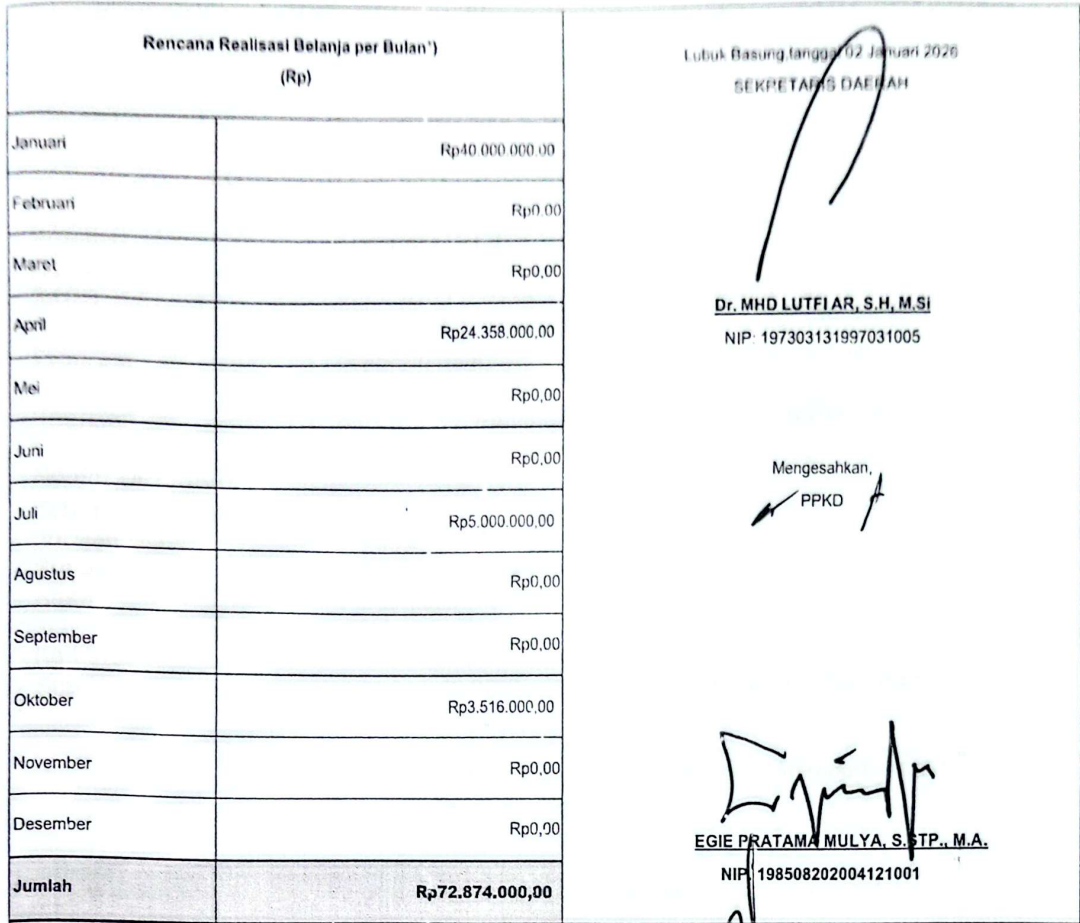 Rencana Realisasi Belanja per Bulan*)
(Rp)
Januari Rp40.000.000,00
Februari Rp0,00
Maret Rp0,00
April Rp24.358.000,00
Mei Rp0,00
Juni Rp0,00
Juli Rp5.000.000,00
Agustus Rp0,00
September Rp0,00
Oktober Rp3.516.000,00
November Rp0,00
Desember Rp0,00
Jumlah Rp72.874.000,00
Lubuk Basung,tanggal 02 Januari 2026
SEKRETARIS DAERAH
Dr. MHD LUTFI AR, S.H, M.Si
NIP: 197303131997031005
Mengesahkan,
PPKD
EGIE PRATAMA MULYA, S.STP., M.A.
NIP 198508202004121001